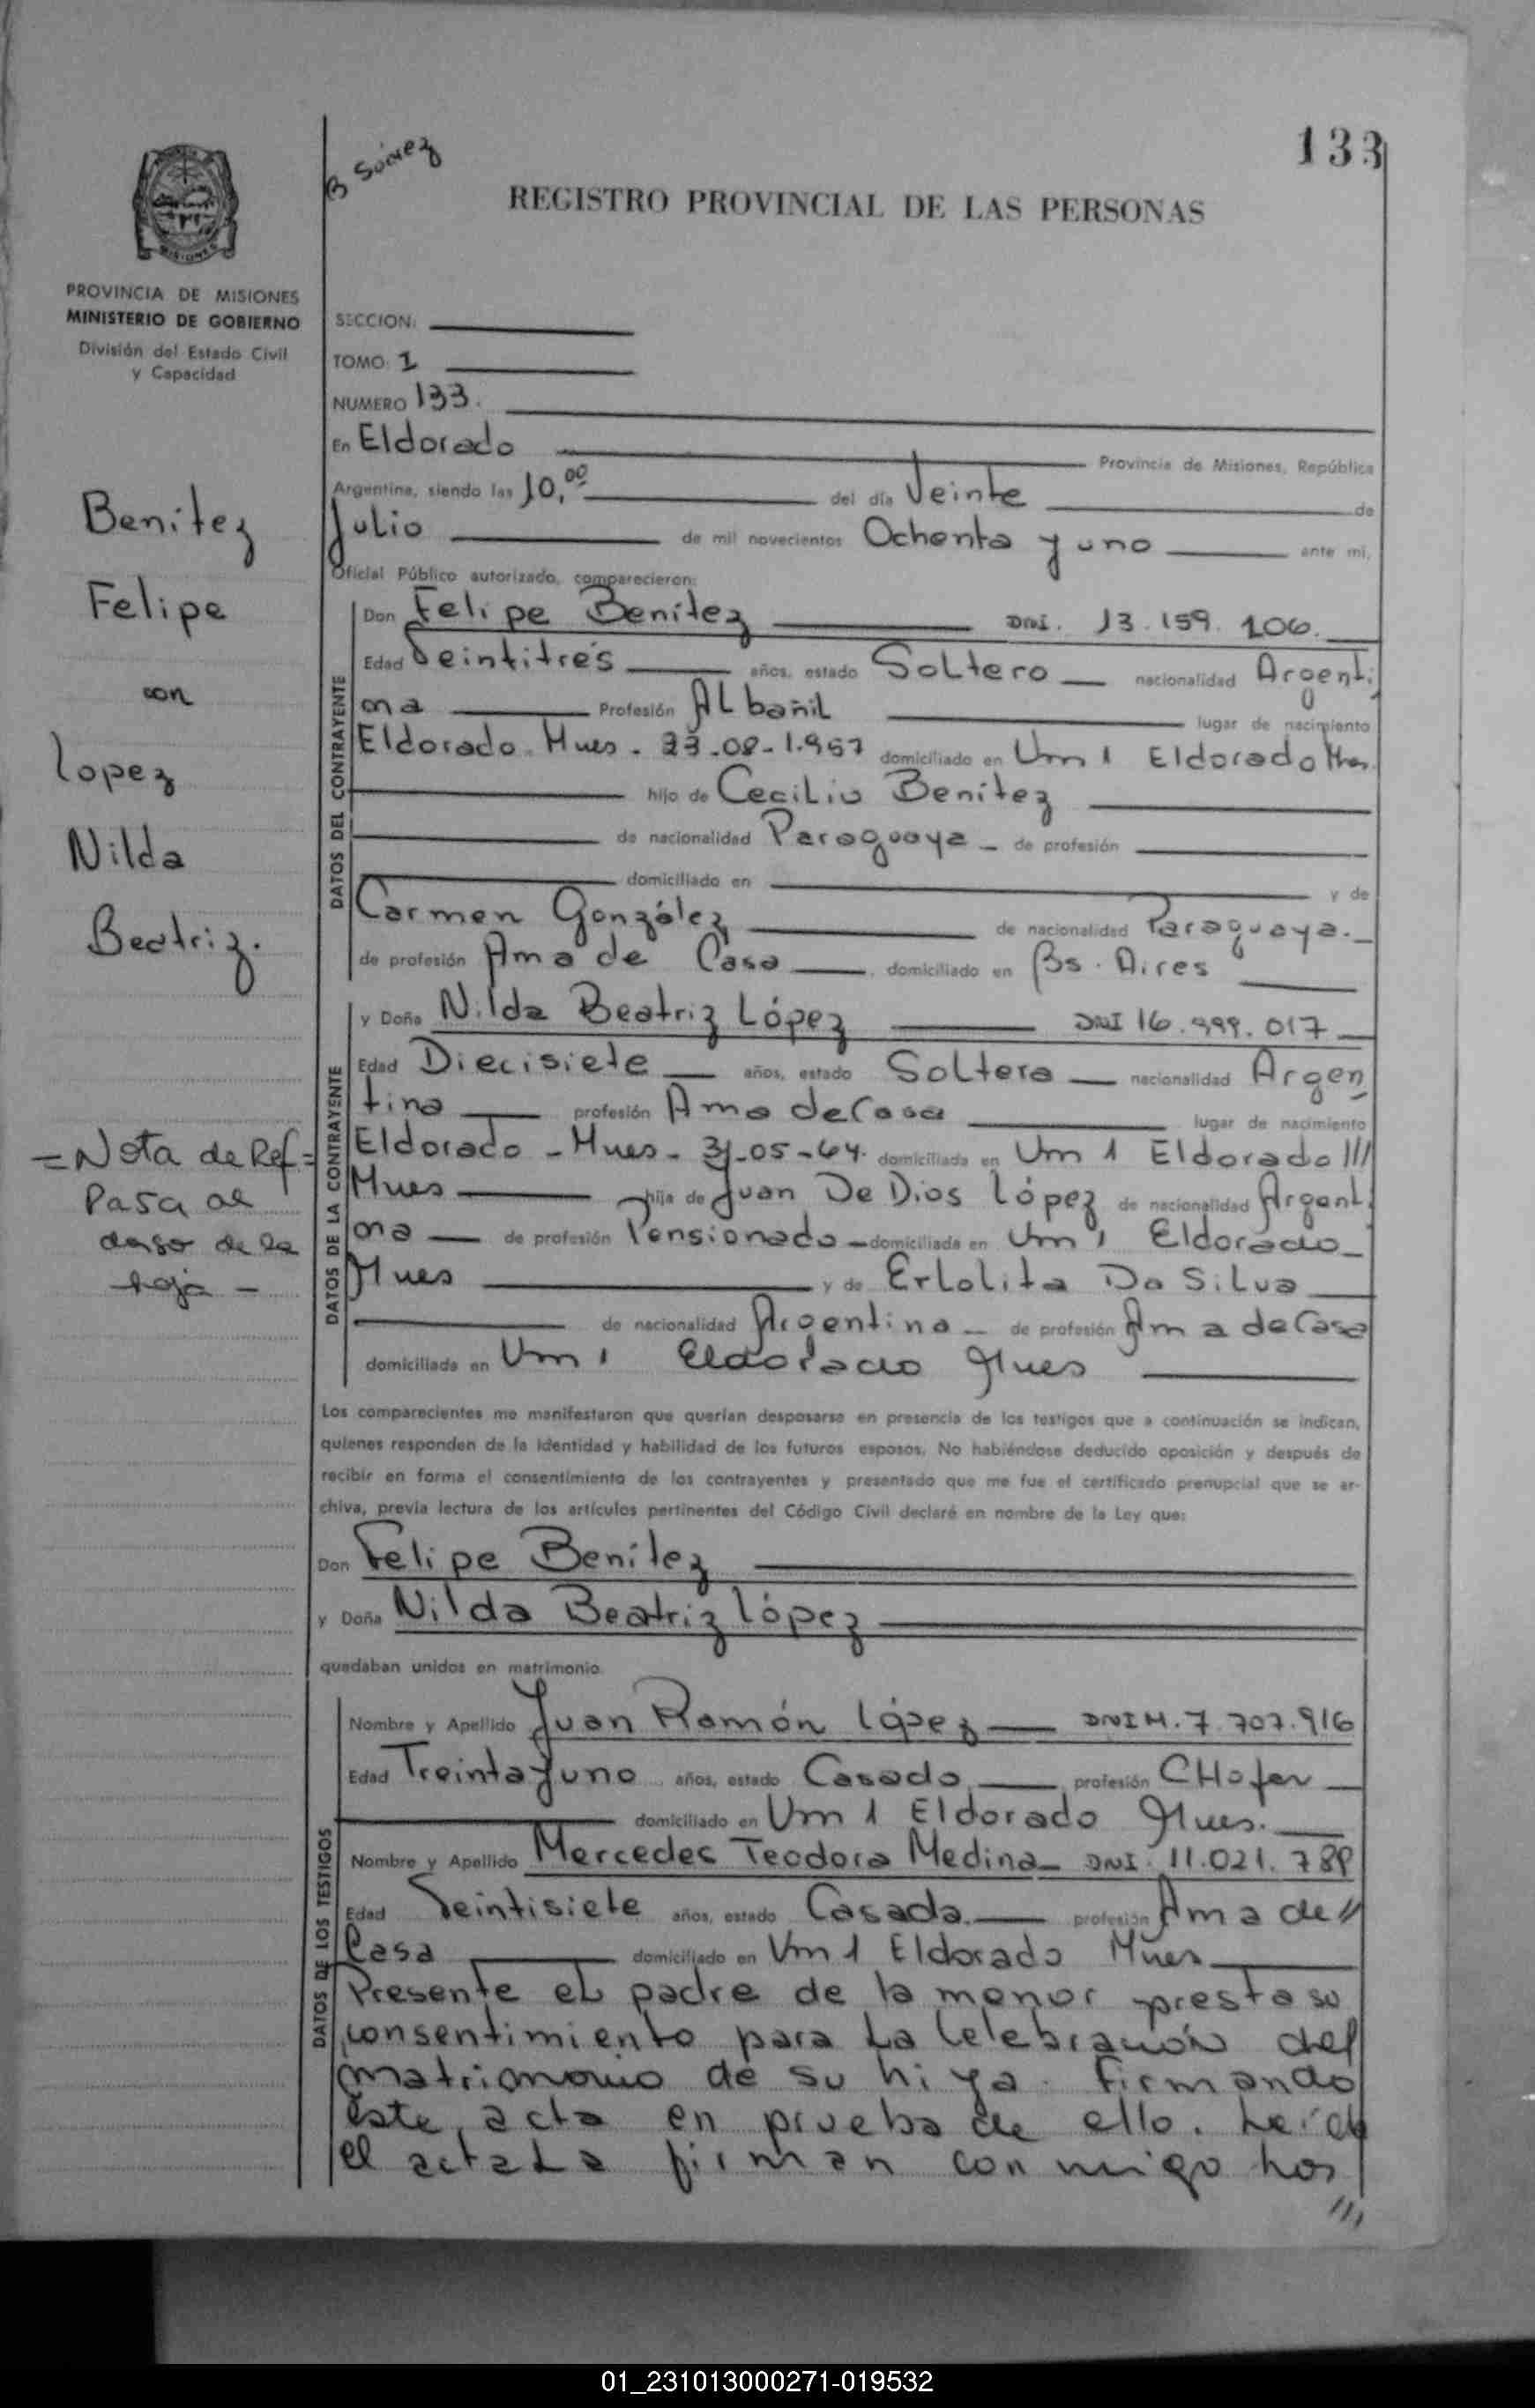 133
B Suárez
REGISTRO PROVINCIAL DE LAS PERSONAS
MISIONES
PROVINCIA DE MISIONES
MINISTERIO DE GOBIERNO
División del Estado Civil
y Capacidad
SECCION:
TOMO: 1
NUMERO 133.
En Eldorado Provincia de Misiones, República
Argentina, siendo las 10,00 del día Veinte de
Julio de mil novecientos Ochenta y uno ante mi,
Oficial Público autorizado, comparecieron:
Benítez
Felipe
con
Lopez
Nilda
Beatriz.
= Nota de Ref =
Pasa al
dorso de la
hoja -
DATOS DEL CONTRAYENTE
Don Felipe Benítez DNI. 13.159.106.
Edad Veintitrés años, estado Soltero nacionalidad Argenti
na Profesión Albañil lugar de nacimiento
Eldorado Mnes - 23-08-1.957 domiciliado en Km 1 Eldorado Mnes
hijo de Cecilio Benítez
de nacionalidad Paraguaya - de profesión
domiciliado en y de
Carmen González de nacionalidad Paraguaya.
de profesión Ama de Casa domiciliado en Bs. Aires
DATOS DE LA CONTRAYENTE
y Doña Nilda Beatriz López DNI 16.999.017
Edad Diecisiete años, estado Soltera nacionalidad Argen
tina profesión Ama de Casa lugar de nacimiento
Eldorado - Mnes - 31-05-64. domiciliada en Km 1 Eldorado ///
Mnes hija de Juan De Dios López de nacionalidad Argenti
na de profesión Pensionado - domiciliada en Km 1 Eldorado
Mnes y de Erlolita Da Silva
de nacionalidad Argentina - de profesión Ama de Casa
domiciliada en Km 1 Eldorado Mnes
Los comparecientes me manifestaron que querían desposarse en presencia de los testigos que a continuación se indican,
quienes responden de la identidad y habilidad de los futuros esposos. No habiéndose deducido oposición y después de
recibir en forma el consentimiento de los contrayentes y presentado que me fue el certificado prenupcial que se ar-
chiva, previa lectura de los artículos pertinentes del Código Civil declaré en nombre de la Ley que:
Don Felipe Benítez
y Doña Nilda Beatriz López
quedaban unidos en matrimonio.
DATOS DE LOS TESTIGOS
Nombre y Apellido Juan Ramón López DNI M. 7.707.916
Edad Treinta y uno años, estado Casado profesión CHofer
domiciliado en Km 1 Eldorado Mnes.
Nombre y Apellido Mercedes Teodora Medina - DNI. 11.021.789
Edad Veintisiete años, estado Casada. profesión Ama de //
Casa domiciliado en Km 1 Eldorado Mnes
Presente el padre de la menor presta su
consentimiento para la Celebración del
matrimonio de su hija. Firmando
éste acta en prueba de ello. Leída
el acta La firman con migo los
///
01_231013000271-019532